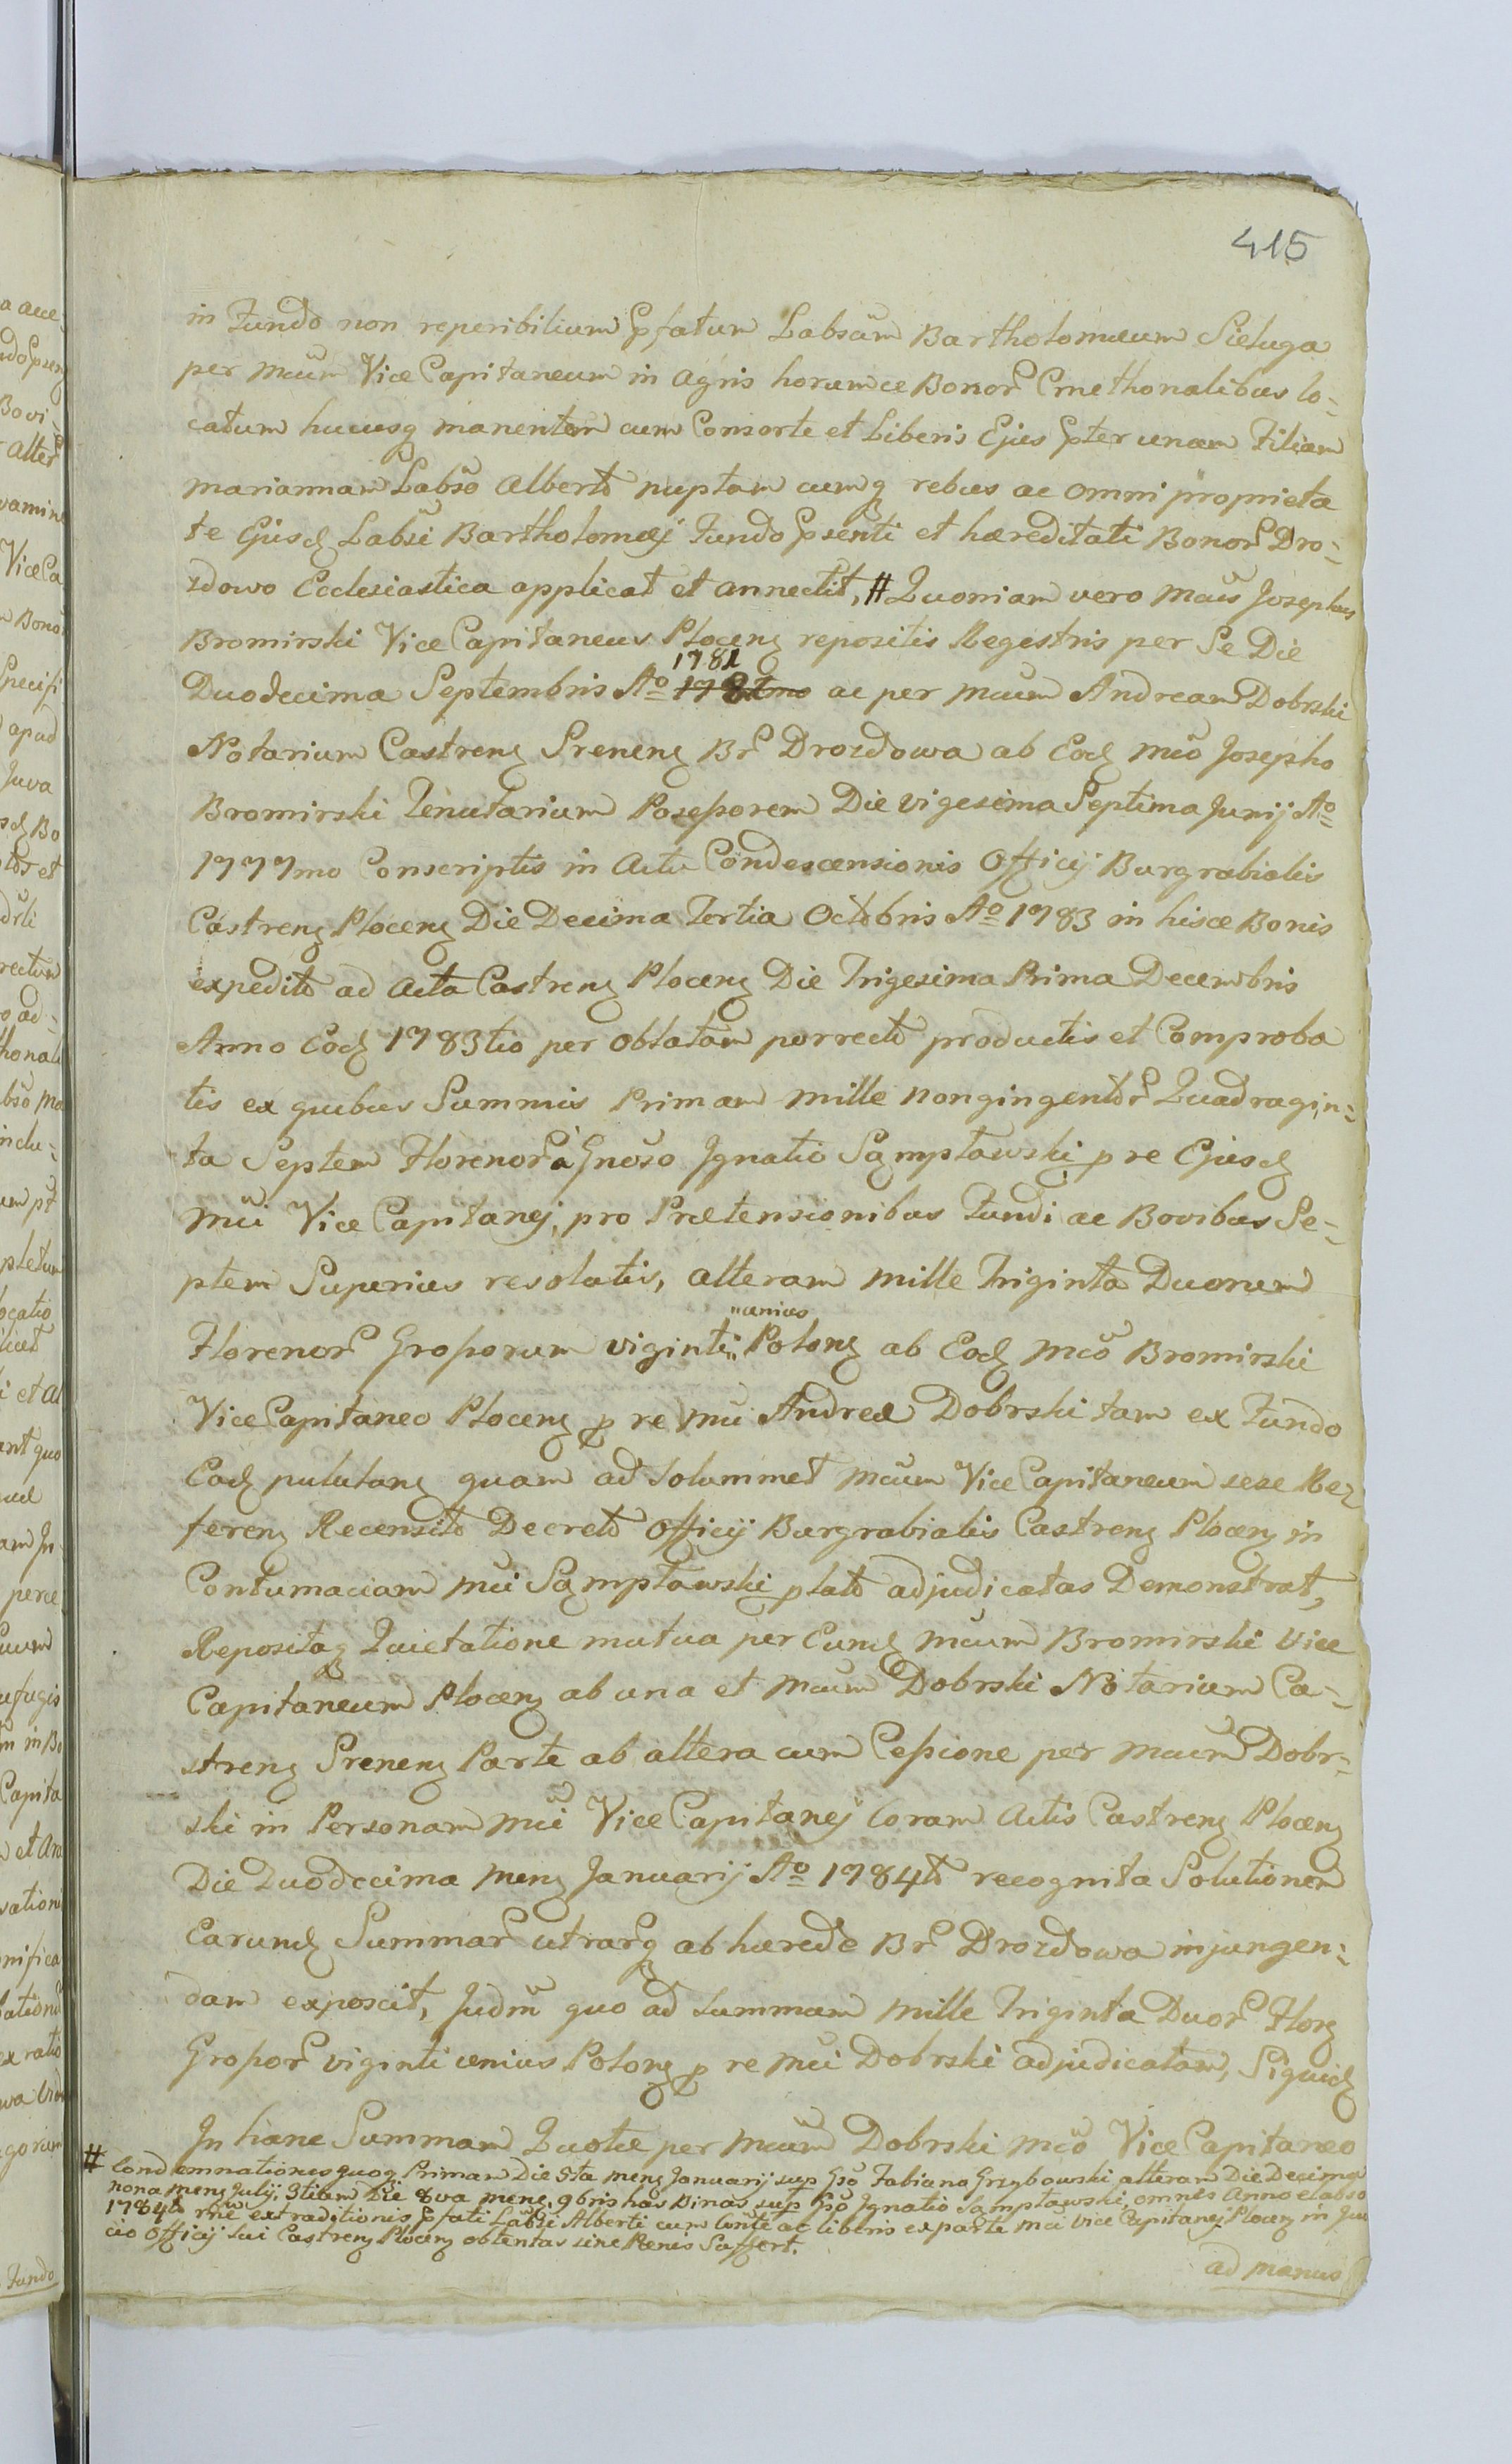 415
in Fundo non reperibilium Pfatum Labsũm Bartholomæum Sieluga
per Mcũm Vice Capitaneum in Agris horumce Bonor Cmethonalibus lo-
catum hucusq manentem cum Consorte et Liberis Ejus Pter unam Filiam
Mariannam Labso Alberto nuptam cumq rebus ac omni proprieta
te Ejusd Labsi Bartholomæj Fundo Psenti et hæreditati Bonor Dro-
zdowo Ecclesiastica applicat et annectit, # Quoniam vero Mcus Josephus
Bromirski Vice Capitaneus Plocens repositis Regestris per Se Die
1781
Duodecima Septembris Ao ac per Mcum Andream Dobrski
Notarium Castrens Srenens Br Drozdowa ab Eod Mco Josepho
Bromirski Tenutarium Possessorem Die vigesima Septima Junij Ao
1777mo Conscriptis in Actu Condescensionis Officij Burgrabialis
Castrens Plocens Die Decima Tertia Octobris Ao 1783 in hisce Bonis
expedito ad Acta Castrens Plocens Die Trigesima Prima Decembris
Anno Eod 1783tio per oblatam porrecto productis et Comproba
tis ex quibus Summis Primam Mille Nongingentor Quadragin-
ta Septem Florenor à Gnoso Ignatio Sąmpławski p re Ejusd
Mci Vice Capitanej, pro Prætensionibus Fundi ac Bovibus Se-
ptem Superius resolutis, alteram Mille Triginta Duorum
"unius
Florenor Grossorum viginti" Polons ab Eod Mco Bromirski
Vice Capitaneo Plocens p re Mci Andreæ Dobrski tam ex Fundo
Eod pululans quam ad Solummet Mcum Vice Capitaneum sese Re-
ferens Recensito Decreto Officij Burgrabialis Castrens Plocens in
Contumaciam Mci Sąmpławski plato adjudicatas Demonstrat,
Repositaq Quietatione mutua per Eund Mcum Bromirski Vice
Capitaneum Plocens ab una et Mcum Dobrski Notarium Ca-
strens Srenens Parte ab altera cum Cessione per Mcum Dobr-
ski in Personam Mci Vice Capitanej Coram Actis Castrens Plocens
Die Duodecima Mens Januarij Ao 1784to recognita Solutionem
Earund Summar utrarq ab hærede Br Drozdowa injungen-
dam exposcit, Judm quo ad Summam Mille Triginta Duor Flors
Grossor viginti unius Polons p re Mci Dobrski adjudicatam, Siquid
In hanc Summam Quotæ per Mcum Dobrski Mco Vice Capitaneo
# Condemnationes quoq Primam Die 5ta Mens Januarij sup Gso Fabiano Grzybowski alteram Die Decima
nona Mens Julij, 3tiam Die 8va Mens 9bris has Binas sup Gso Ignatio Sąmpławski, omnes Anno elabso
1784to rne extraditionis Pfati Labsi Alberti cum Conte ac liberis exparte Mci Vice Capitanej Plocens in Jud
cio Officij sui Castrens Plocens obtentas sine Pœnis Suffert.
ad manus